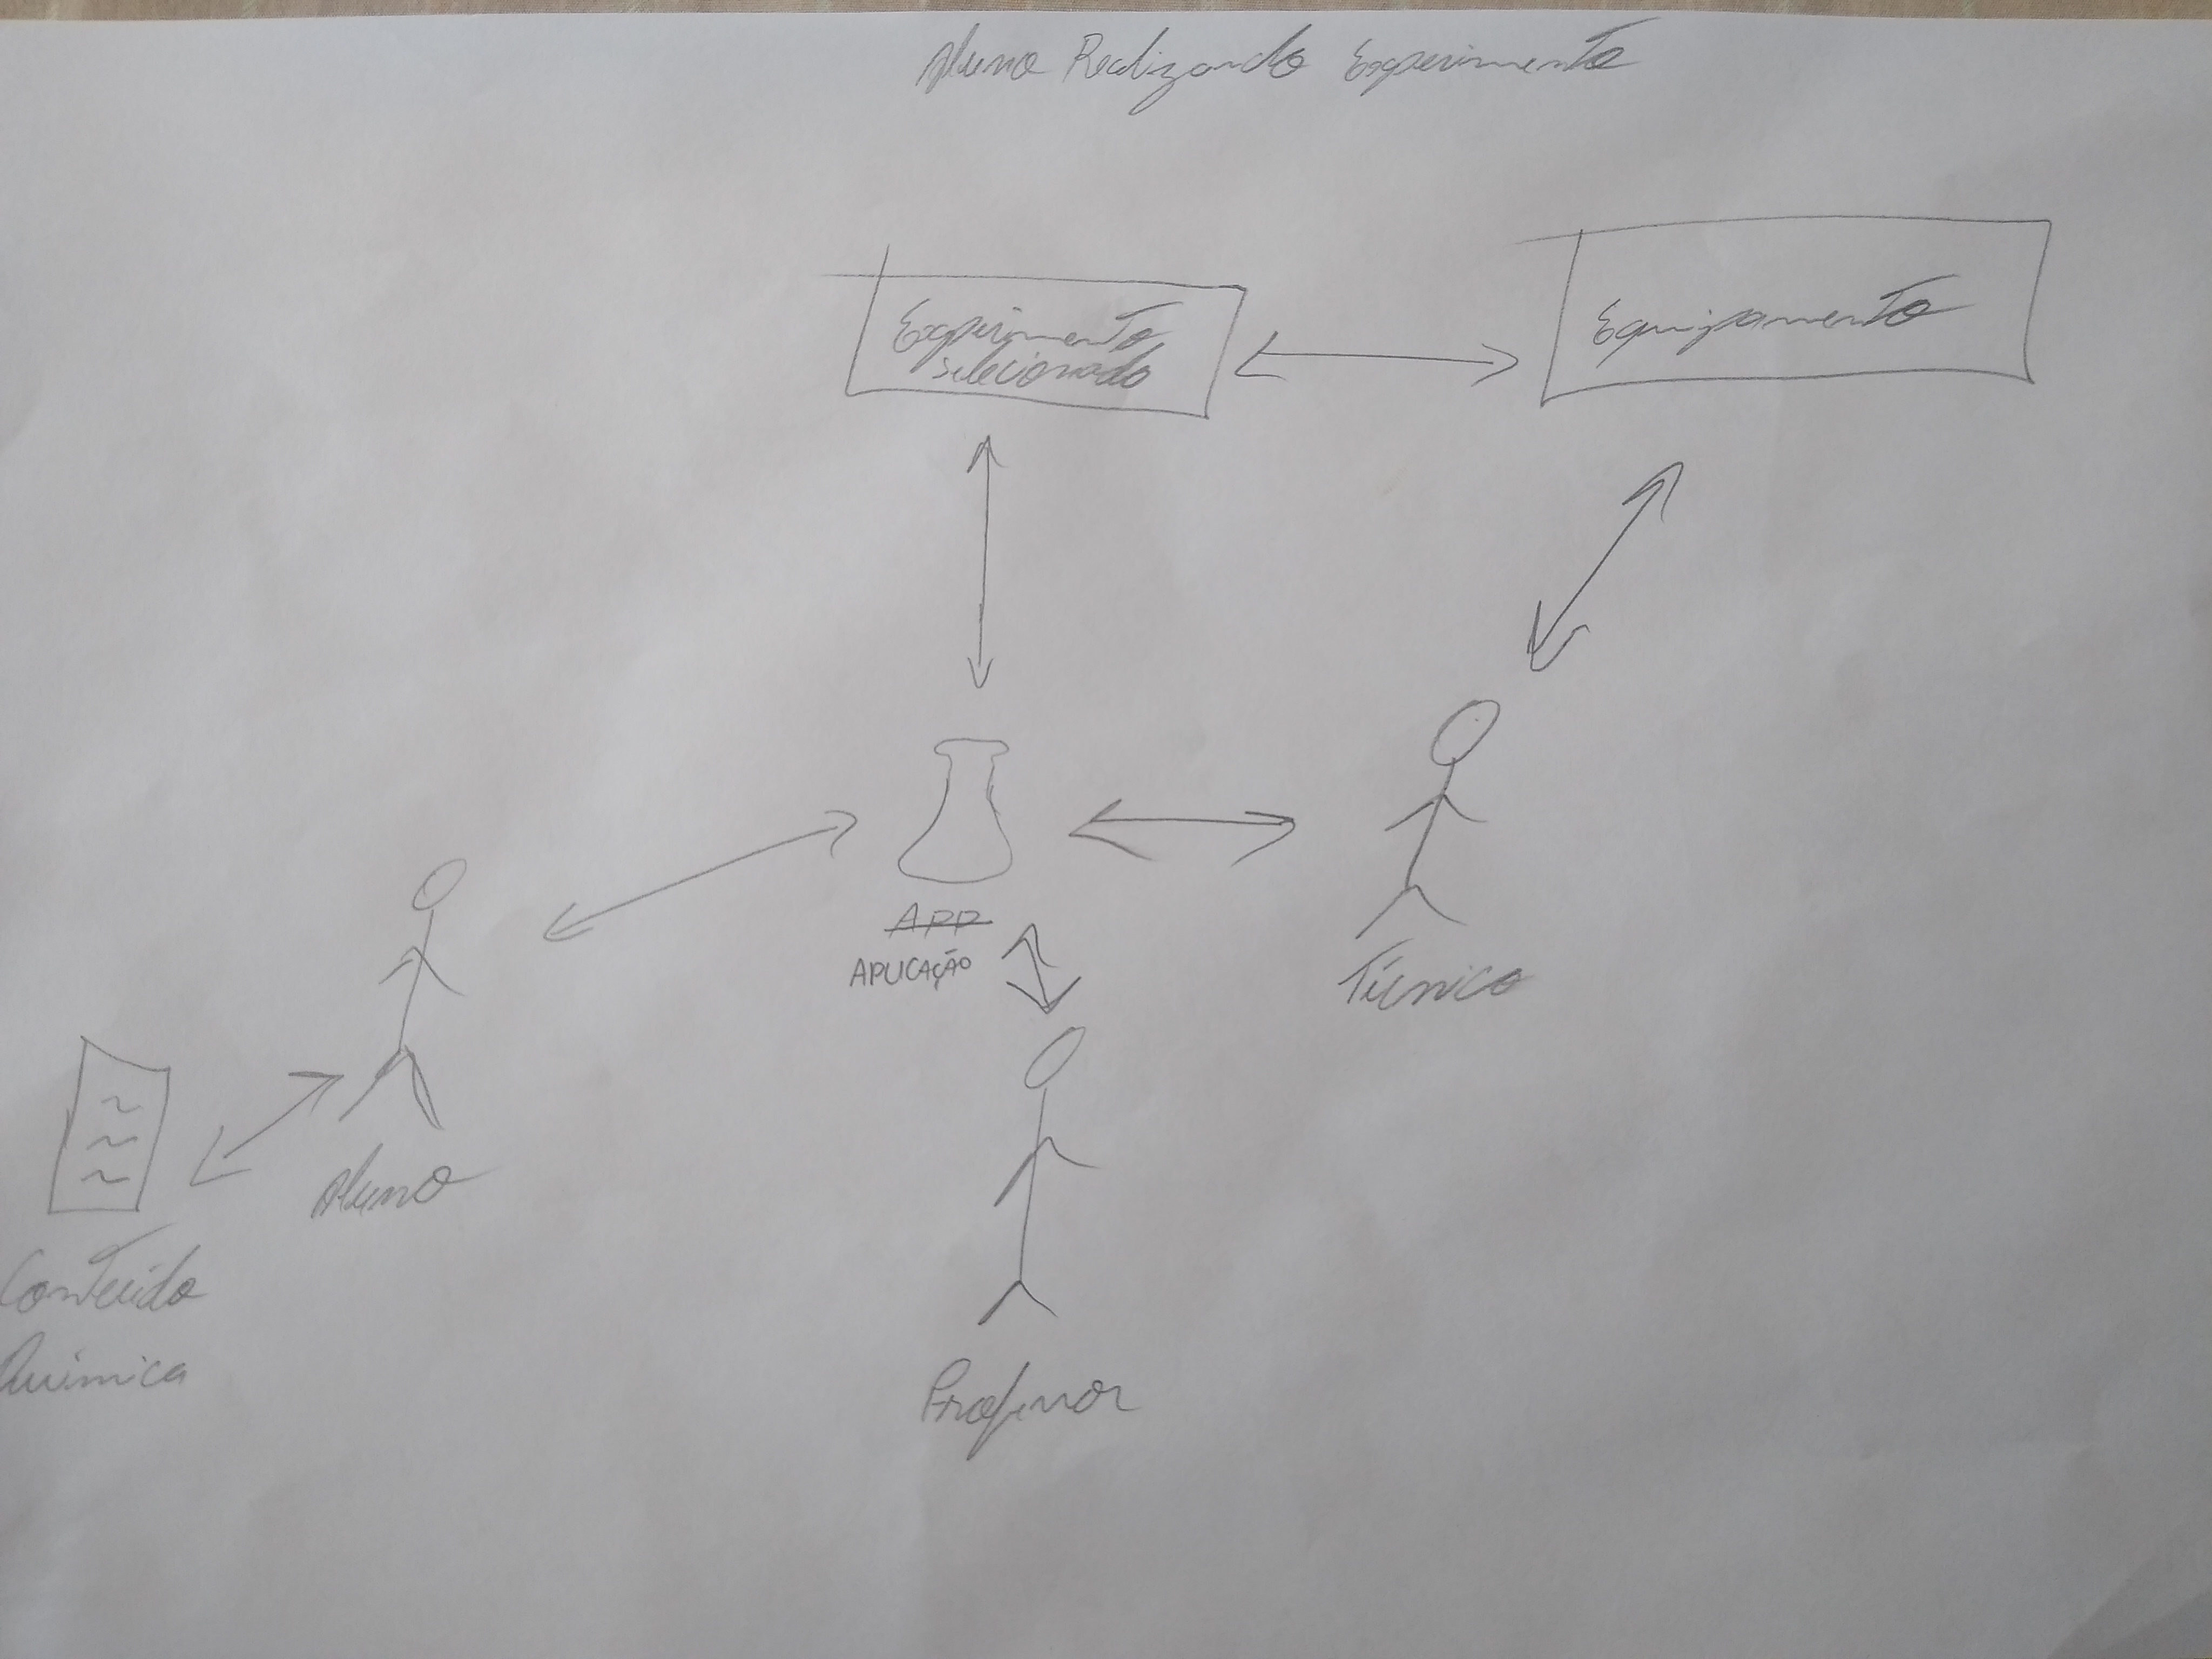 Aluno Realizando Experimento
Experimento
selecionado
Equipamento
APP
APLICAÇÃO
Técnico
Aluno
Conteúdo
Química
Professor